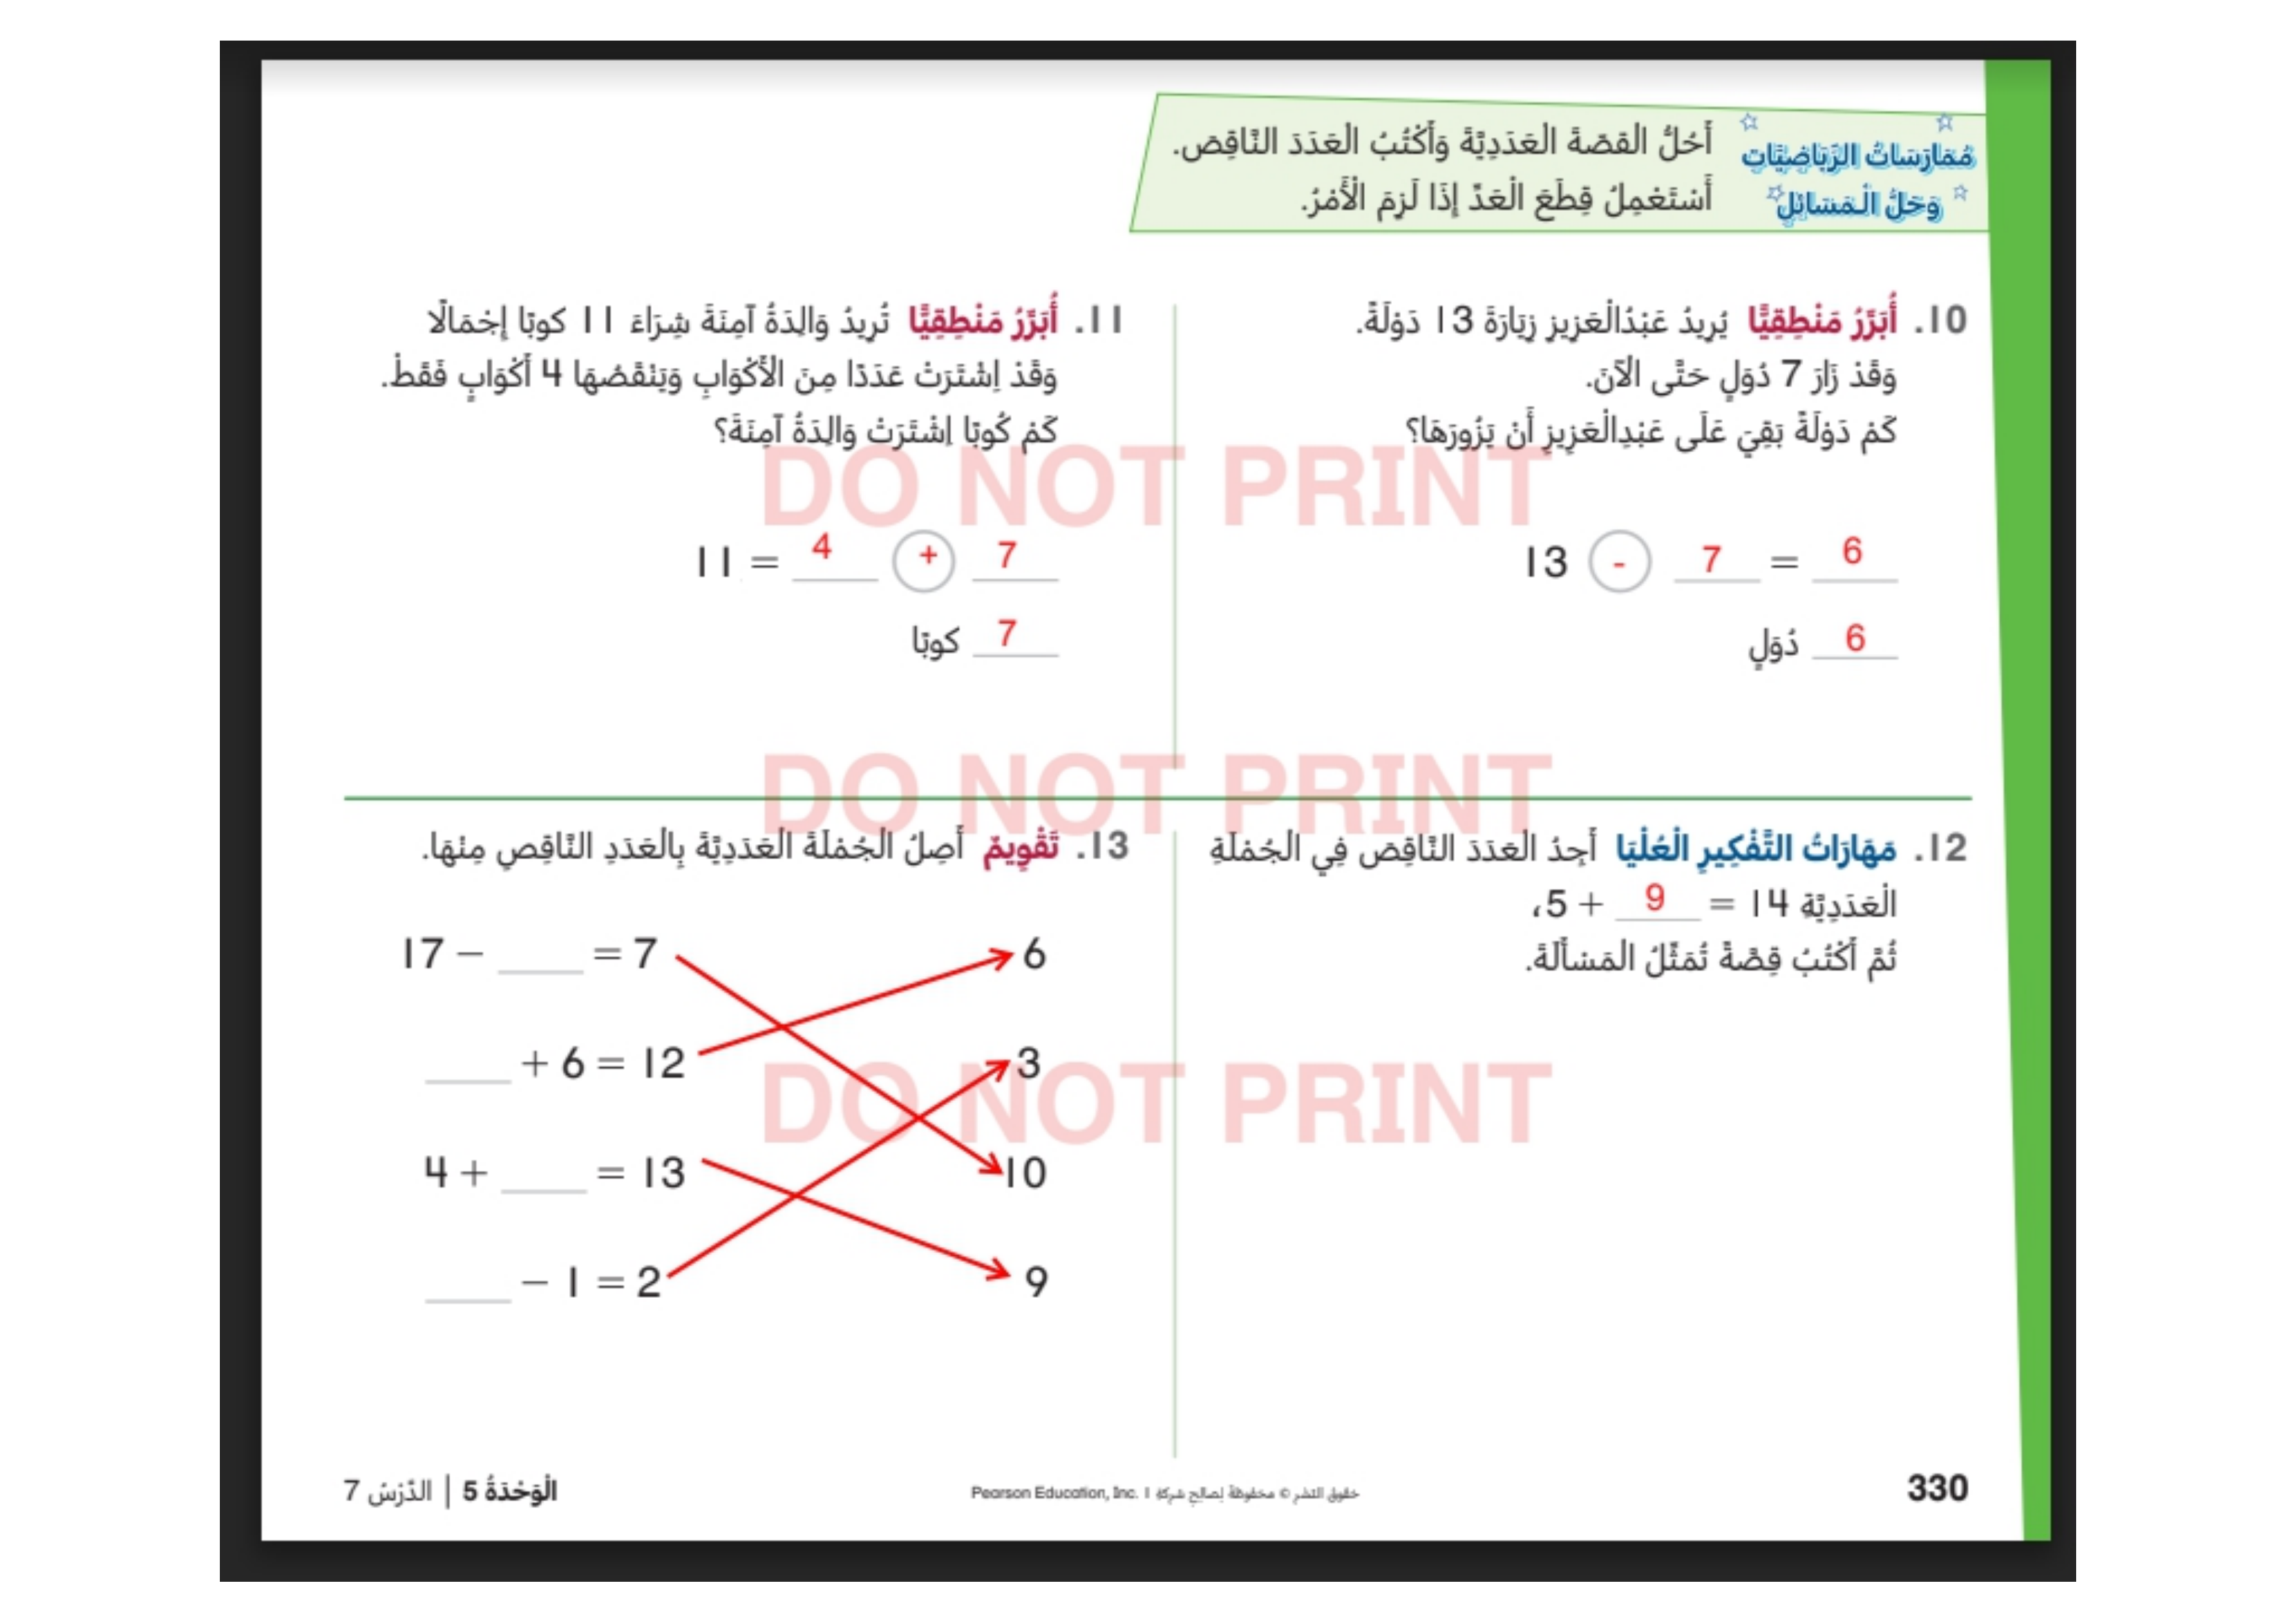 مُمَارَسَاتُ الرِّيَاضِيَّاتِ
وَحَلُّ الْمَسَائِلِ
أَحُلُّ الْقصّةَ الْعَدَدِيَّةَ وَأَكْتُبُ الْعَدَدَ النَّاقِصَ.
أَسْتَعْمِلُ قِطَعَ الْعَدِّ إِذَا لَزِمَ الْأَمْرُ.
10. أُبَرِّرُ مَنْطِقِيًّا يُرِيدُ عَبْدُالْعَزِيزِ زِيَارَةَ 13 دَوْلَةً.
وَقَدْ زَارَ 7 دُوَلٍ حَتَّى الْآنَ.
كَمْ دَوْلَةً بَقِيَ عَلَى عَبْدِالْعَزِيزِ أَنْ يَزُورَهَا؟
13 - 7 = 6
6 دُوَلٍ
11. أُبَرِّرُ مَنْطِقِيًّا تُرِيدُ وَالِدَةُ آمِنَةَ شِرَاءَ 11 كوبًا إِجْمَالًا
وَقَدْ اِشْتَرَتْ عَدَدًا مِنَ الْأَكْوَابِ وَيَنْقَصُهَا 4 أَكْوَابٍ فَقَطْ.
كَمْ كُوبًا اِشْتَرَتْ وَالِدَةُ آمِنَةَ؟
11 = 4 + 7
7 كوبًا
DO NOT PRINT
DO NOT PRINT
12. مَهَارَاتُ التَّفْكِيرِ الْعُلْيَا أَجِدُ الْعَدَدَ النَّاقِصَ فِي الْجُمْلَةِ
الْعَدَدِيَّةِ 5 + 9 = 14،
ثُمَّ أَكْتُبُ قِصَّةً تُمَثِّلُ الْمَسْأَلَةَ.
13. تَقْوِيمٌ أَصِلُ الْجُمْلَةَ الْعَدَدِيَّةَ بِالْعَدَدِ النَّاقِصِ مِنْهَا.
17 − ____ = 7 6
____ + 6 = 12 3
4 + ____ = 13 10
____ − 1 = 2 9
DO NOT PRINT
330
حقوق النشر © محفوظة لصالح شركة Pearson Education, Inc. 1
الْوَحْدَةُ 5 | الدَّرْسُ 7